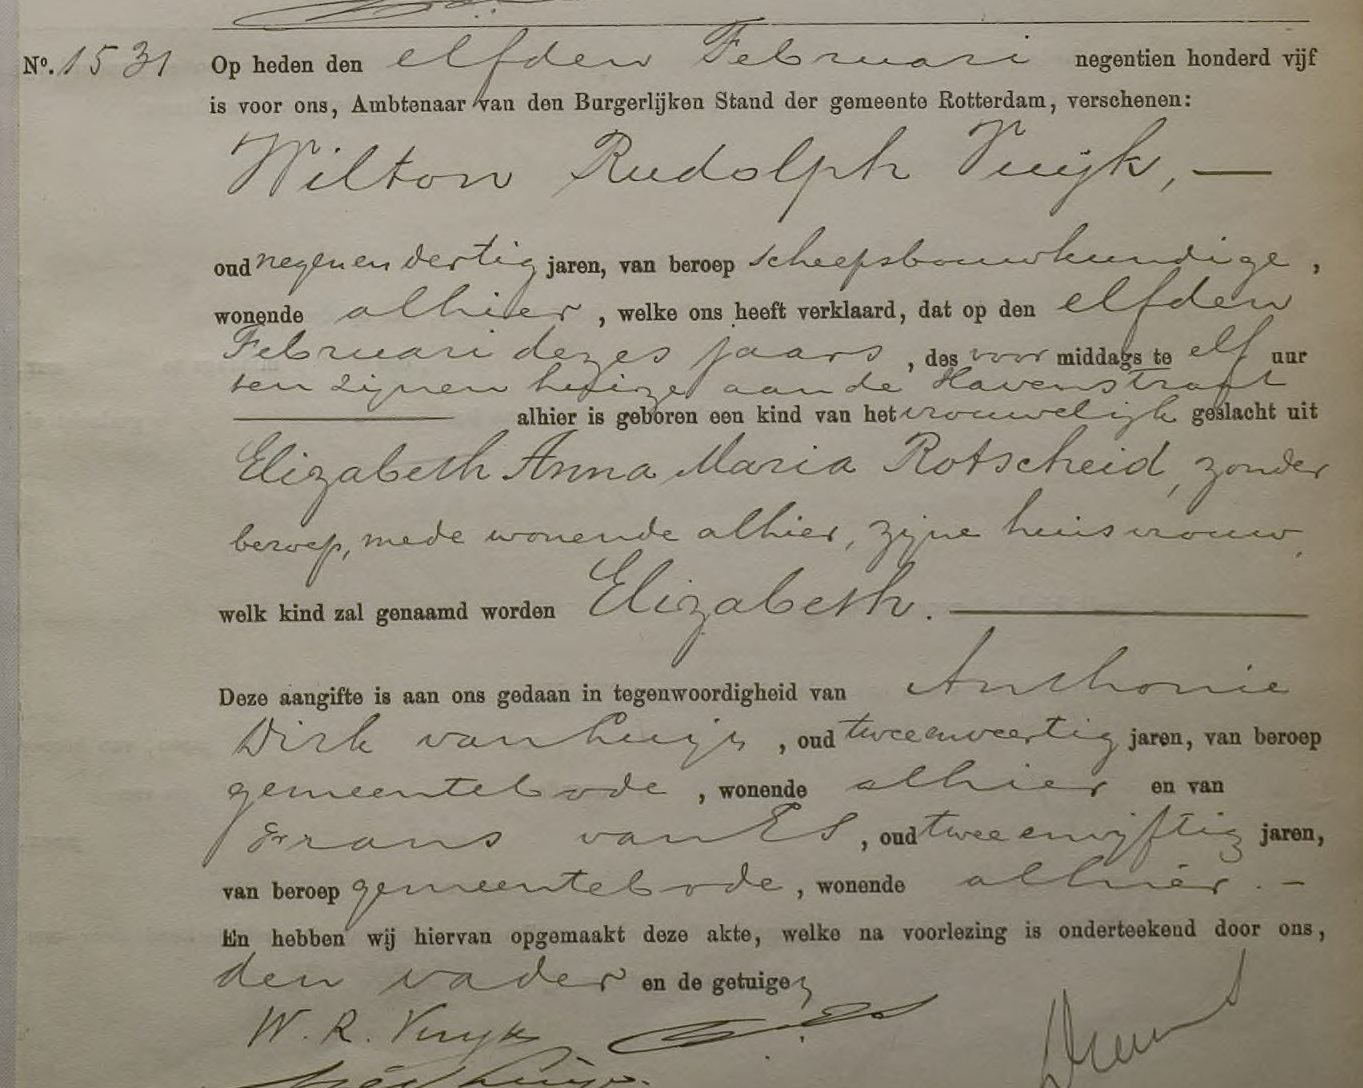 Nº. 1531 Op heden den elfden Februari negentien honderd vijf
is voor ons, Ambtenaar van den Burgerlijken Stand der gemeente Rotterdam, verschenen:
Wilton Rudolph Vuijk, —
oud negenendertig jaren, van beroep scheepsbouwkundige,
wonende alhier, welke ons heeft verklaard, dat op den elfden
Februari dezes jaars, des voormiddags te elf uur
ten zijnen huize aan de Havenstraat
alhier is geboren een kind van het vrouwelijk geslacht uit
Elizabeth Anna Maria Rotscheid, zonder
beroep, mede wonende alhier, zijne huisvrouw,
welk kind zal genaamd worden Elizabeth.
Deze aangifte is aan ons gedaan in tegenwoordigheid van Anthonie
Dirk van, oud tweeenveertig jaren, van beroep
gemeentebode, wonende alhier en van
Frans van Es, oud tweeenvijftig jaren,
van beroep gemeentebode, wonende alhier. —
En hebben wij hiervan opgemaakt deze akte, welke na voorlezing is onderteekend door ons,
den vader en de getuigen
W. R. Vuyk